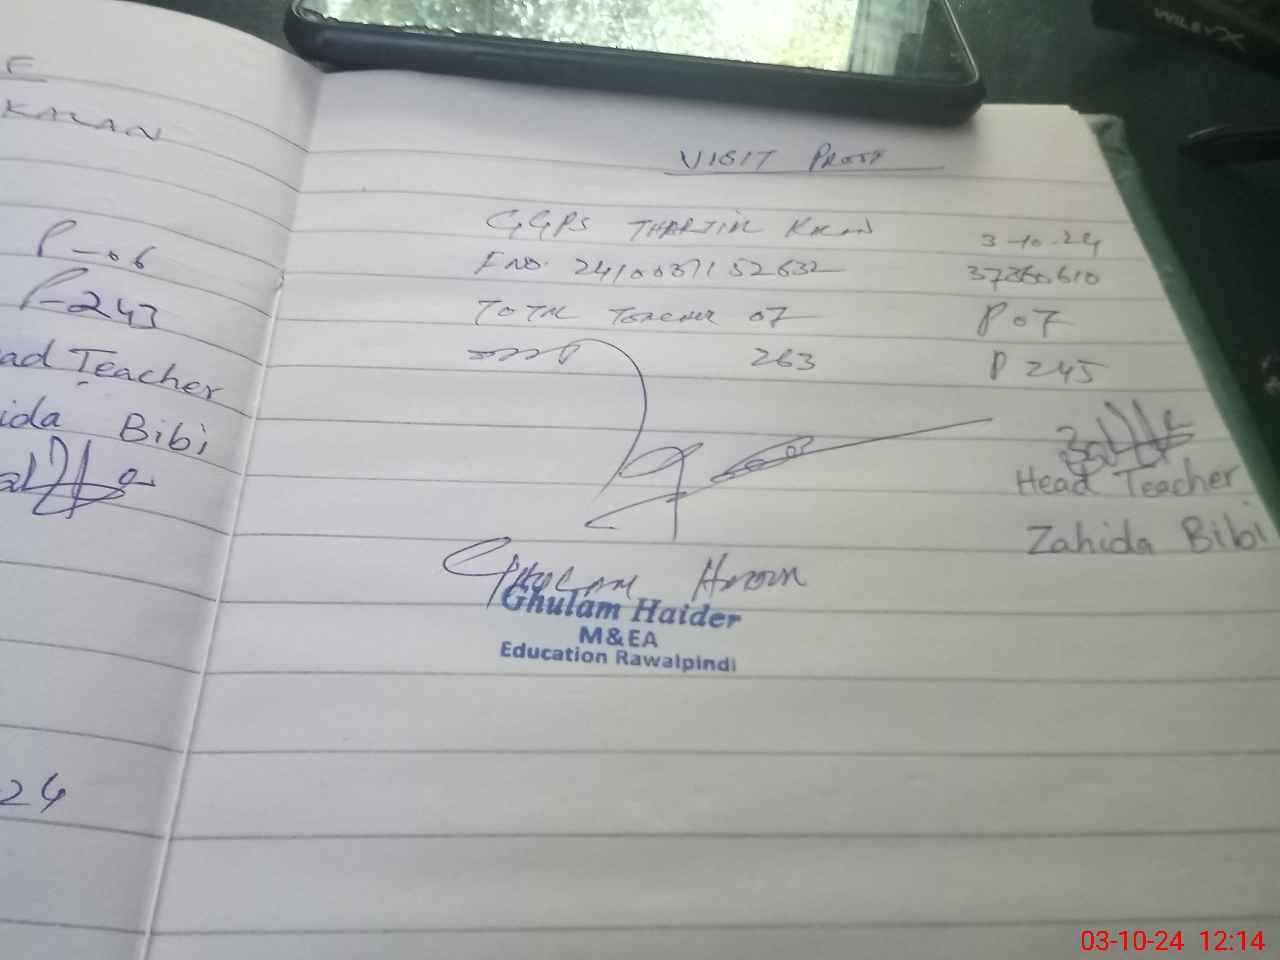 E
KALAN
P-06
P-243
ad Teacher
ida Bibi
24
VISIT PROOF
GGPS Kalan 3-10-24
37360610
TOTAL TEACHER 07 P 07
263 P 245
Head Teacher
Zahida Bibi
GHULAM HAIDER
Ghulam Haider
M&EA
Education Rawalpindi
WILEY X
03-10-24 12:14